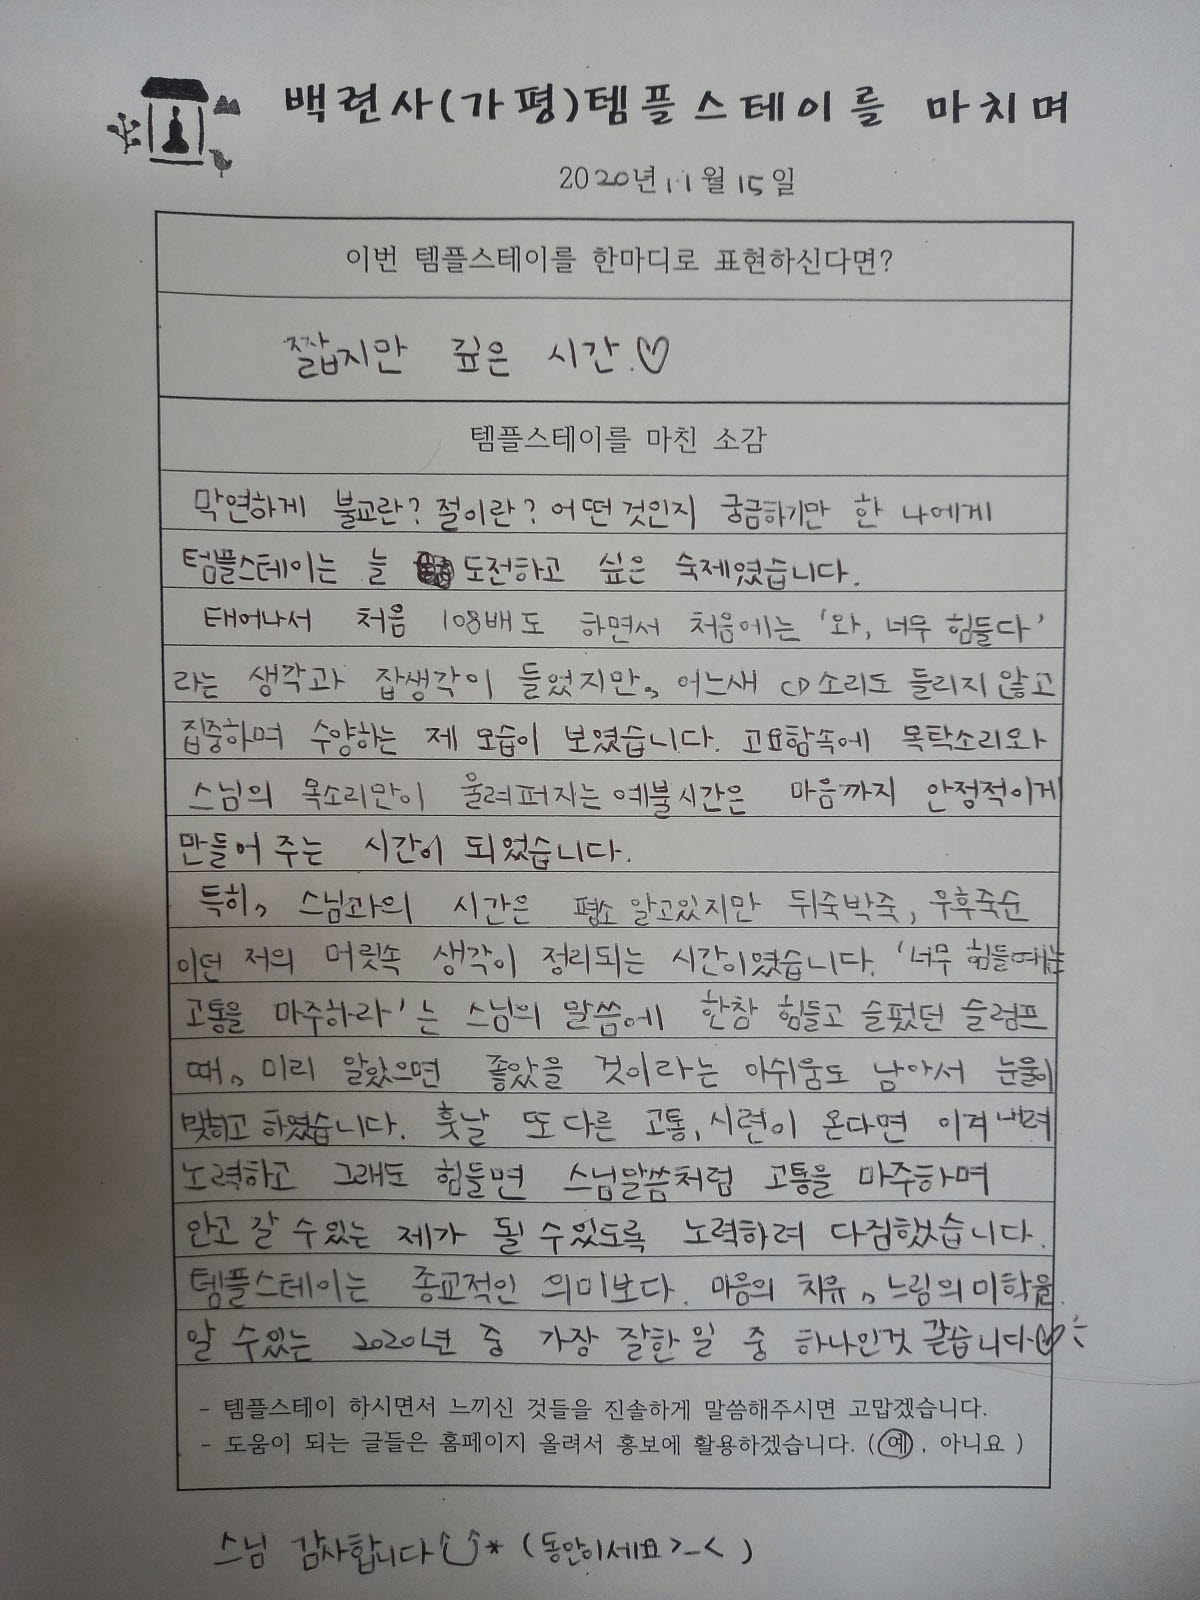 백련사(가평)템플스테이를 마치며
2020년 11월 15일
이번 템플스테이를 한마디로 표현하신다면?
짧지만 깊은 시간.♡
템플스테이를 마친 소감
막연하게 불교란? 절이란? 어떤 것인지 궁금하기만 한 나에게
템플스테이는 늘 도전하고 싶은 숙제였습니다.
태어나서 처음 108배도 하면서 처음에는 '와, 너무 힘들다'
라는 생각과 잡생각이 들었지만, 어느새 CD소리도 들리지 않고
집중하며 수양하는 제 모습이 보였습니다. 고요함속에 목탁소리와
스님의 목소리만이 울려퍼지는 예불시간은 마음까지 안정적이게
만들어 주는 시간이 되었습니다.
특히, 스님과의 시간은 평소 알고있지만 뒤죽박죽, 우후죽순
이던 저의 머릿속 생각이 정리되는 시간이였습니다. '너무 힘들때는
고통을 마주하라'는 스님의 말씀에 한창 힘들고 슬펐던 슬럼프
때, 미리 알았으면 좋았을 것이라는 아쉬움도 남아서 눈물이
맺히고 하였습니다. 훗날 또 다른 고통, 시련이 온다면 이겨내려
노력하고 그래도 힘들면 스님말씀처럼 고통을 마주하며
안고 갈 수있는 제가 될 수있도록 노력하려 다짐했습니다.
템플스테이는 종교적인 의미보다. 마음의 치유, 느림의 미학을
알 수있는 2020년 중 가장 잘한 일 중 하나인것 같습니다♡
- 템플스테이 하시면서 느끼신 것들을 진솔하게 말씀해주시면 고맙겠습니다.
- 도움이 되는 글들은 홈페이지 올려서 홍보에 활용하겠습니다. (예, 아니요 )
스님 감사합니다* (동안이세요>_< )